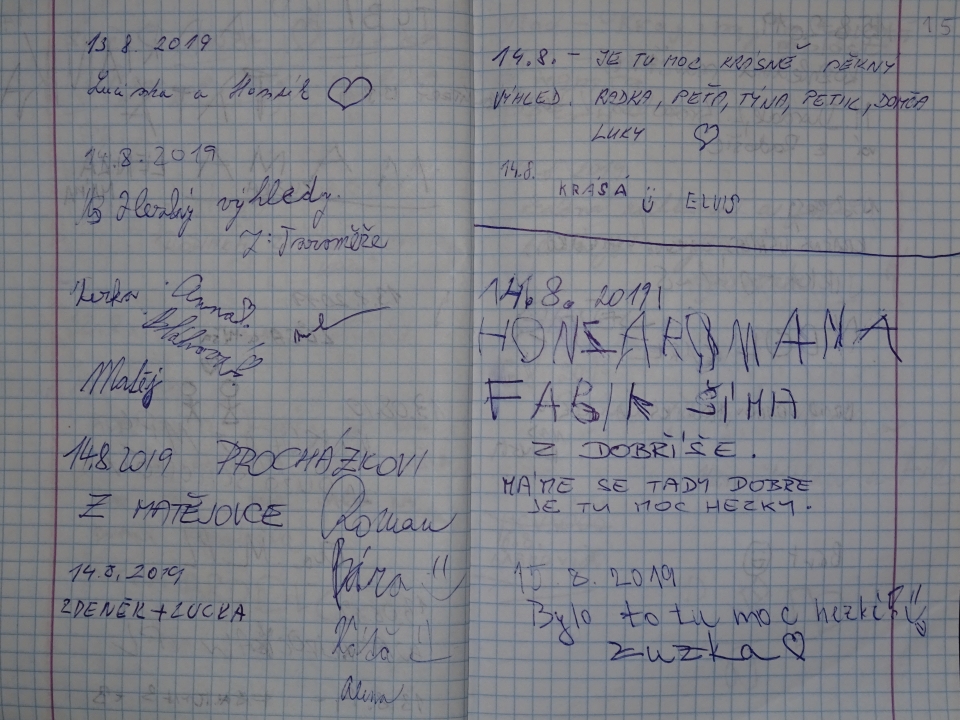 13.8. 2019
Lucinka a Honzík
14.8. 2019
výhledy.
Z: Jaroměře
Verka Anna
Matěj
14.8.2019 PROCHÁZKOVI
Z MATĚJOVCE Roman
Bára
14.8.2019
ZDENĚK + LUCKA
Alena
15
14.8. - JE TU MOC KRÁSNĚ PĚKNY
VÝHLED. RADKA, PEŤA, TÝNA, PETIK, DOMČA
LUKY
14.8.
KRÁSÁ ELVIS
14.8. 2019!
HONZA ROMANA
FABIK ŠÍMA
Z DOBŘÍŠE.
MÁME SE TADY DOBŘE
JE TU MOC HEZKÝ.
15 8. 2019
Bylo to tu moc hezkí
zuzka